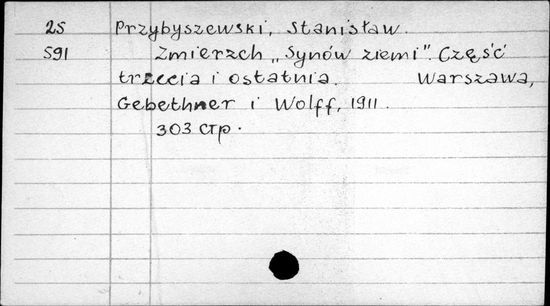 25 Przybyszewski, Stanisław.
591 Zmierzch „Synów ziemi". Część
trzecia i ostatnia. Warszawa,
Gebethner i Wolff, 1911.
303 стр.